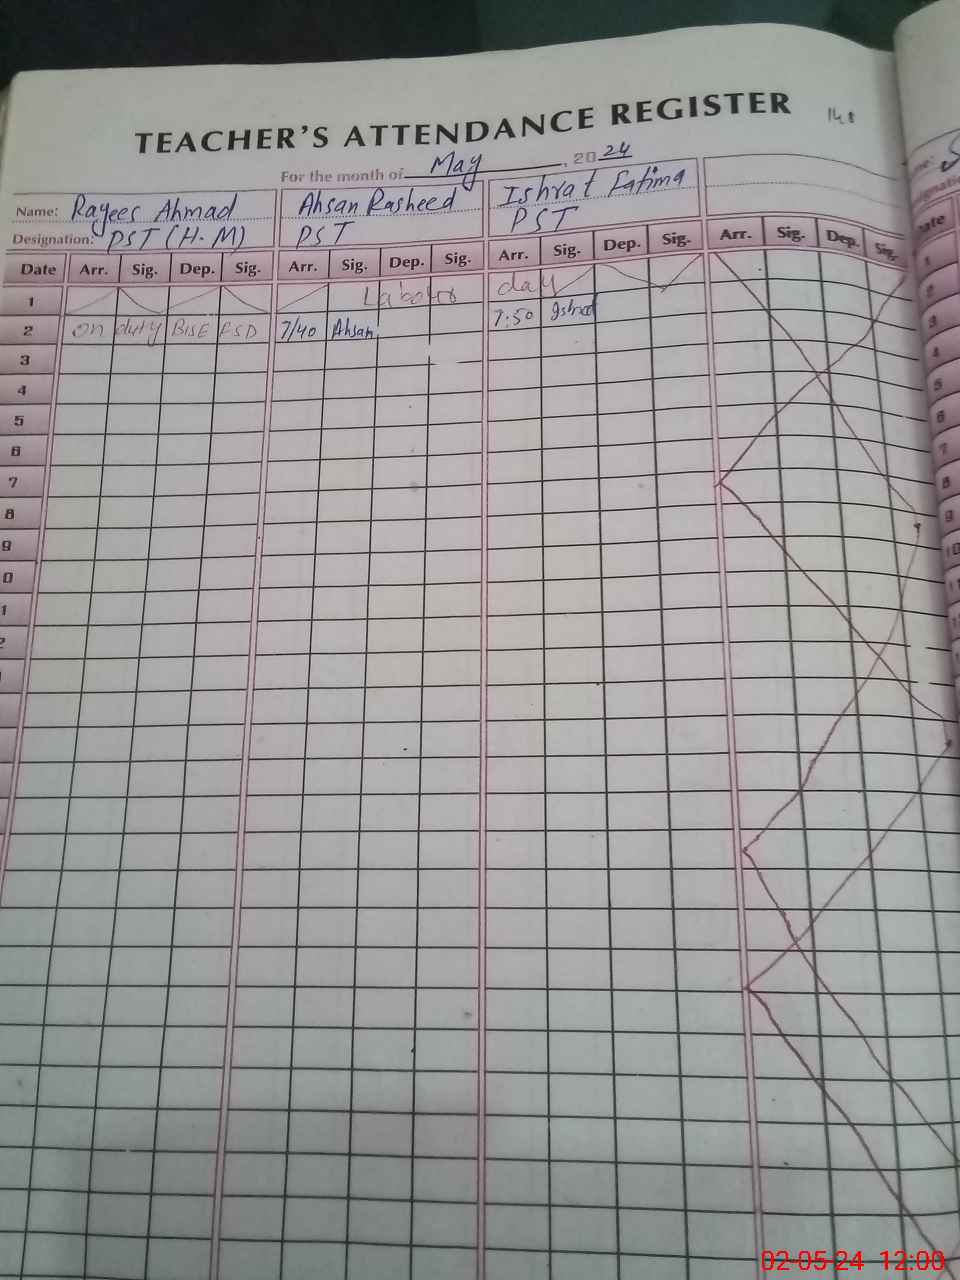 TEACHER'S ATTENDANCE REGISTER
For the month of May, 2024
Name: Rayees Ahmad Ahsan Rasheed Ishrat Fatima
Designation: PST (H.M) PST PST
Date Arr. Sig. Dep. Sig. Arr. Sig. Dep. Sig. Arr. Sig. Dep. Sig. Arr. Sig. Dep. Sig.
1 Labour day
2 on duty BISE FSD 7/40 Ahsan 7:50 Ishrat
3
4
5
6
7
8
9
0
1
2
ate
1
2
3
4
5
6
7
8
9
10
02-05-24 12:00